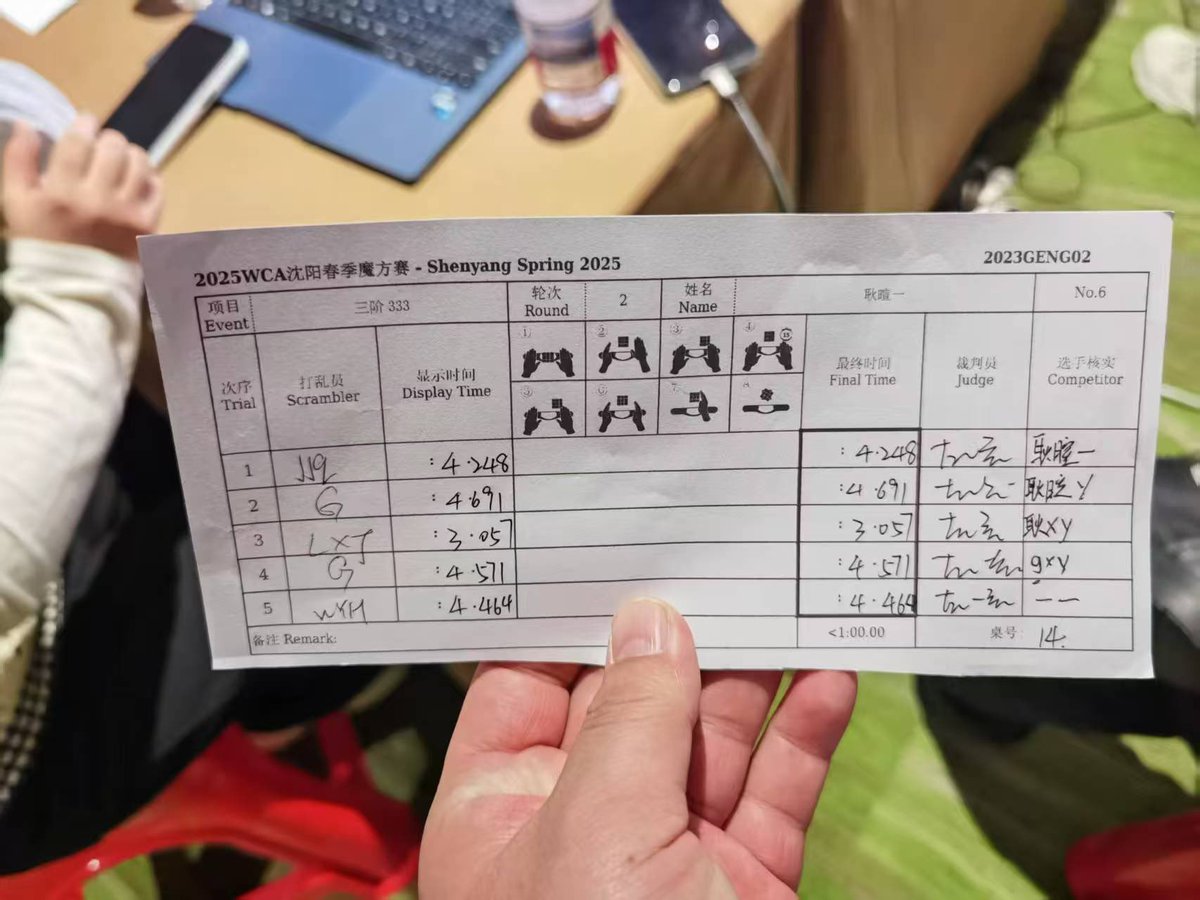 2025WCA沈阳春季魔方赛 - Shenyang Spring 2025 2023GENG02
项目 Event 三阶 333 轮次 Round 2 姓名 Name 耿暄一 No.6
次序 Trial 打乱员 Scrambler 显示时间 Display Time ① ② ③ ④ 15 ⑤ ⑥ 7 8 最终时间 Final Time 裁判员 Judge 选手核实 Competitor
1 :4.248 :4.248 耿暄一
2 G :4.691 :4.691 耿暄Y
3 LXJ :3.057 :3.057 耿XY
4 G :4.571 :4.571 gxy
5 WYH :4.464 :4.464 一一
备注 Remark: <1:00.00 桌号: 14.